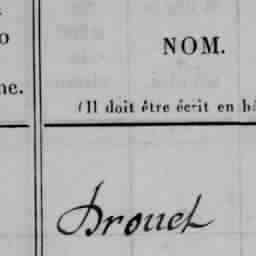 o
NOM.
ne.
(Il doit être écrit en
Drouet